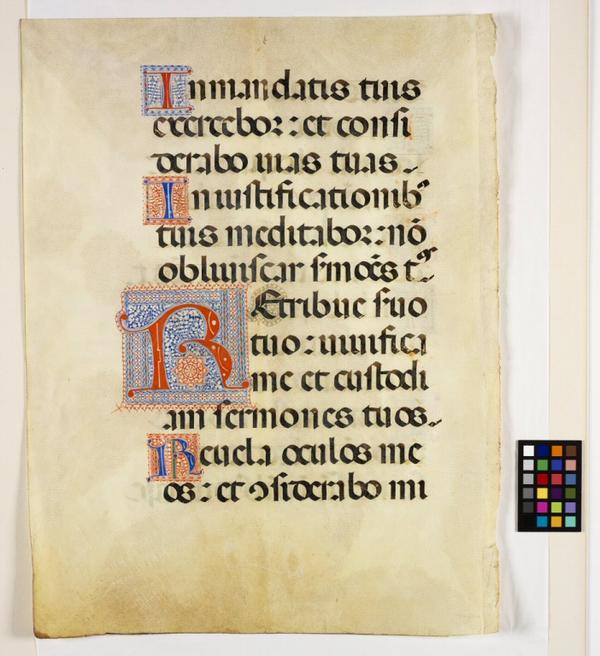 In mandatis tuis
exercebor: et consi
derabo uias tuas.
In iustificationib9
tuis meditabor: nõ
obliuiscar s̃mões t9.
REtribue s̃uo
tuo: uiuifica
me et custodi
am sermones tuos.
Reuela oculos me
os: et ꝯsiderabo mi